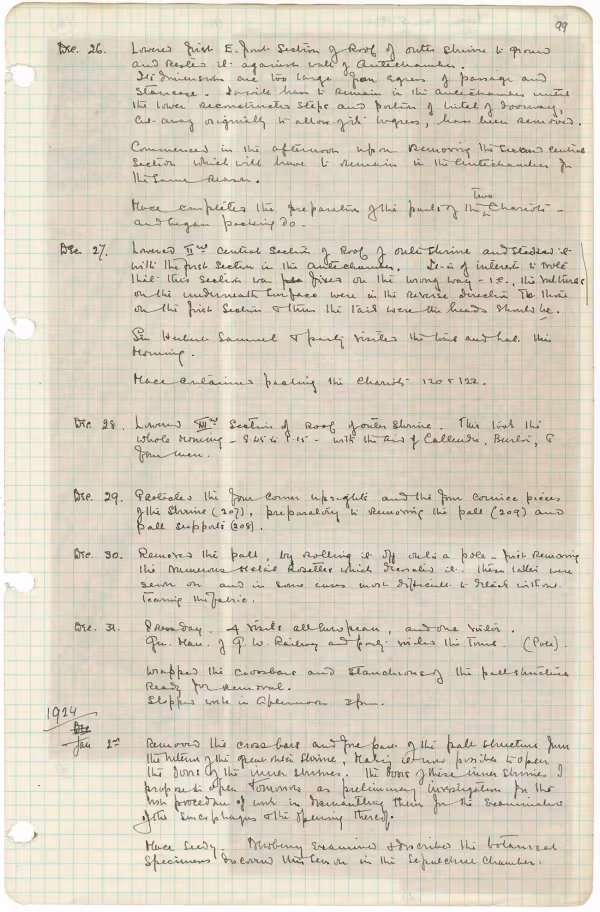 99
Dec. 26. Lowered first E. front Section of Roof of outer Shrine to ground
and rested it against wall of Antechamber.
Its dimensions are too large for egress of passage and
staircase. It will have to remain in the Antechamber until
the lower reconstructed steps and portion of lintel of doorway,
cut away originally to allow of its ingress, have been removed.
Commenced in the afternoon upon removing the second central
Section which will have to remain in the Antechamber for
the same reason.
Mace completed the preparation of the parts of the two Chariots –
and began packing do.
Dec. 27. Lowered IInd central Section of Roof of outer Shrine and stacked it
with the first section in the Antechamber. It is of interest to note
that this section was fixed on the wrong way – i.e., the vultures
on the underneath surface were in the reverse direction to those
on the first Section & thus the tails were the heads should be.
Sir Herbert Samuel & party visited the tomb and lab. this
morning.
Mace continued packing the Chariots 120 & 122.
Dec. 28. Lowered IIIrd Section of Roof of outer Shrine. This took the
whole morning – 8.45 to 1.15 – with the aid of Callender, Burton, &
four men.
Dec. 29. the four corner uprights and the four cornice pieces
of the Shrine (207), preparatory to removing the pall (209) and
pall supports (208).
Dec. 30. Removed the pall, by rolling it off onto a pole – first removing
the numerous metal Rosettes which decorated it. These latter were
sewn on and in some cases most difficult to detach without
tearing the fabric.
Dec. 31. Press day. 4 visits all European, and one visitor.
Gen. Man. of G. W. Railway and party visited the Tomb. (Pole).
Wrapped the crossbars and stanchions of the pall structure
ready for removal.
Stopped work in Afternoon 3 p.m.
1924
Jan 2nd Removed the cross bars and fore part of the pall structure from
the interior of the open outer Shrine, making it now possible to open
the doors of the inner shrines. The doors of these inner shrines I
propose to open tomorrow as preliminary investigation for the
procedure of work in dismantling them for the examination
of the Sarcophagus & the opening thereof.
Mace seedy. Newberry examined & described the botanical
specimens discovered this season in the Sepulchral Chamber.